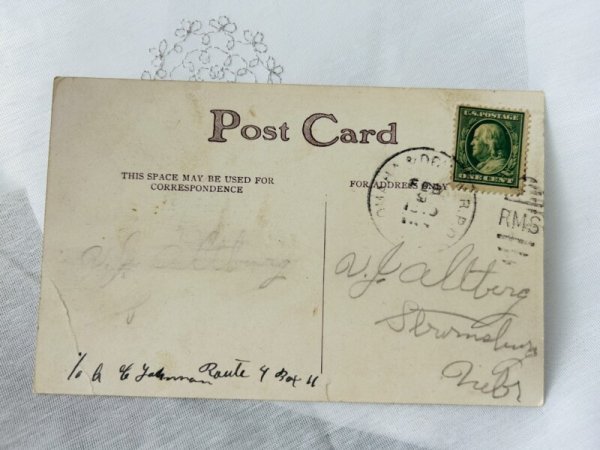 Post Card
THIS SPACE MAY BE USED FOR
CORRESPONDENCE
FOR ADDRESS ONLY
U.S. POSTAGE
ONE CENT
OMAHA &
R.P.O.
RMS
Altberg
Stromsburg
Nebr
Route 4 Box 11